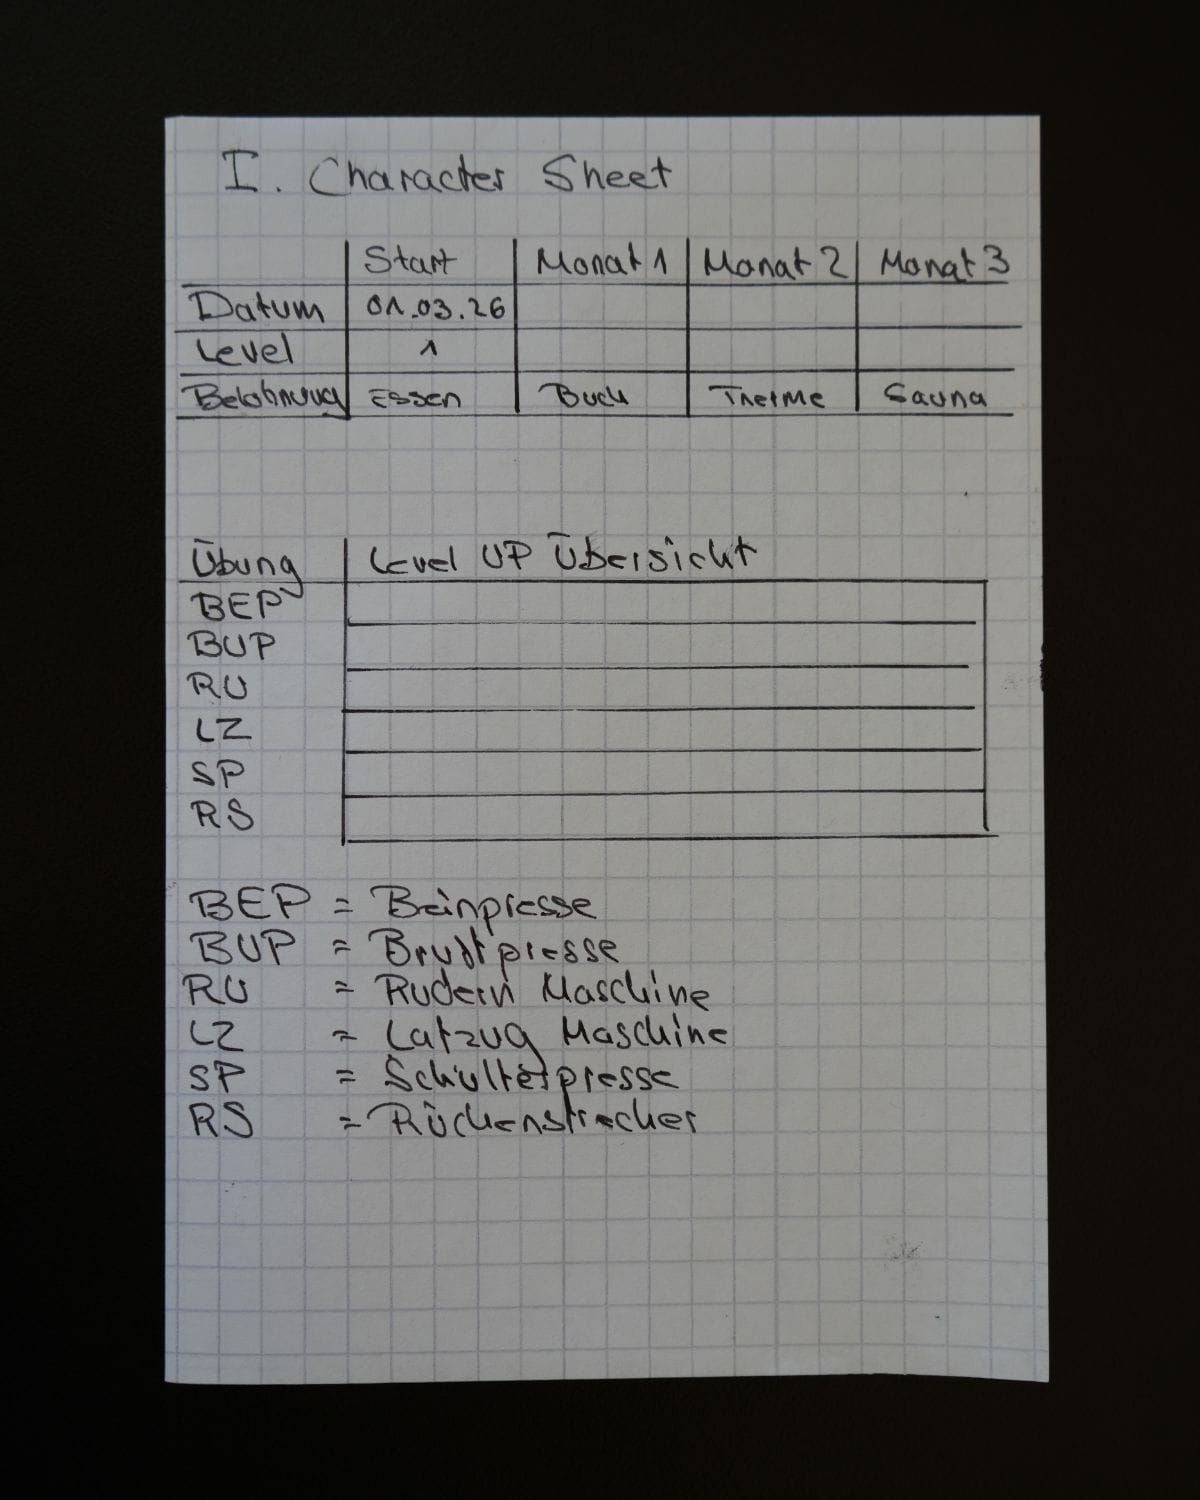 I. Character Sheet
Start Monat 1 Monat 2 Monat 3
Datum 01.03.26
Level 1
Belohnung Essen Buch Therme Sauna
Übung Level UP Übersicht
BEP
BUP
RU
LZ
SP
RS
BEP = Beinpresse
BUP = Brustpresse
RU = Rudern Maschine
LZ = Latzug Maschine
SP = Schulterpresse
RS = Rückenstrecker